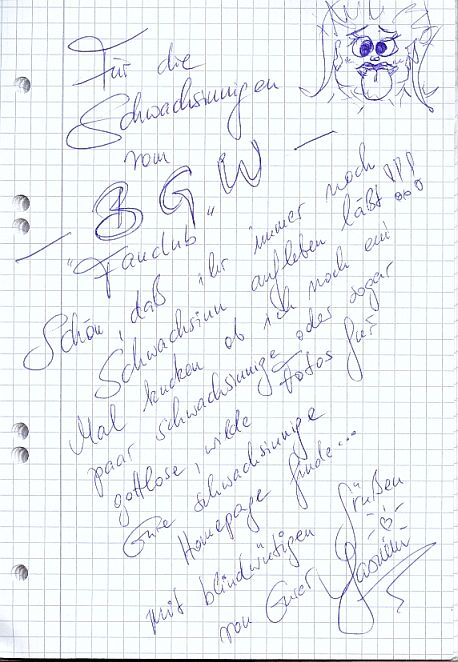 Für die
Schwachsinnigen
vom
— BGW —
"Fanclub"
Schön, daß ihr immer noch
Schwachsinn aufleben läßt!!!
Mal kucken ob ich noch ein
paar schwachsinnige oder sogar
gottlose, wilde Fotos für
Eure schwachsinnige
Homepage finde...
mit blindwütigen Grüßen
von Eurer